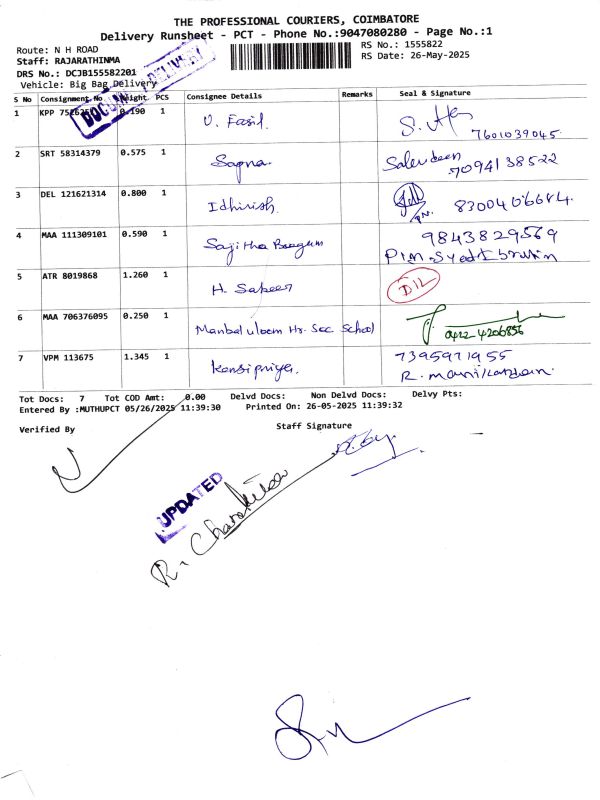 THE PROFESSIONAL COURIERS, COIMBATORE
Delivery Runsheet - PCT - Phone No.:9047080280 - Page No.:1
Route: N H ROAD
RS No.: 1555822
Staff: RAJARATHINMA
RS Date: 26-May-2025
DRS No.: DCJB155582201
Vehicle: Big Bag Delivery
DELIVERY
S No Consignment No PCS Consignee Details Remarks Seal & Signature
1 KPP 0.190 1 U. Fasil.
7601039045.
2 SRT 58314379 0.575 1 Sapna
7094138522
3 DEL 121621314 0.800 1 Idhirish.
8300406684.
4 MAA 111309101 0.590 1 Sajitha Beegum
9843829569
5 ATR 8019868 1.260 1 H. Sabeer
6 MAA 706376095 0.250 1 Manbal uloom Hr. Sec School
0422-4206856
7 VPM 113675 1.345 1
7395971955
Tot Docs: 7 Tot COD Amt: 0.00 Delvd Docs: Non Delvd Docs: Delvy Pts:
Entered By :MUTHUPCT 05/26/2025 11:39:30 Printed On: 26-05-2025 11:39:32
Verified By
Staff Signature
UPDATED